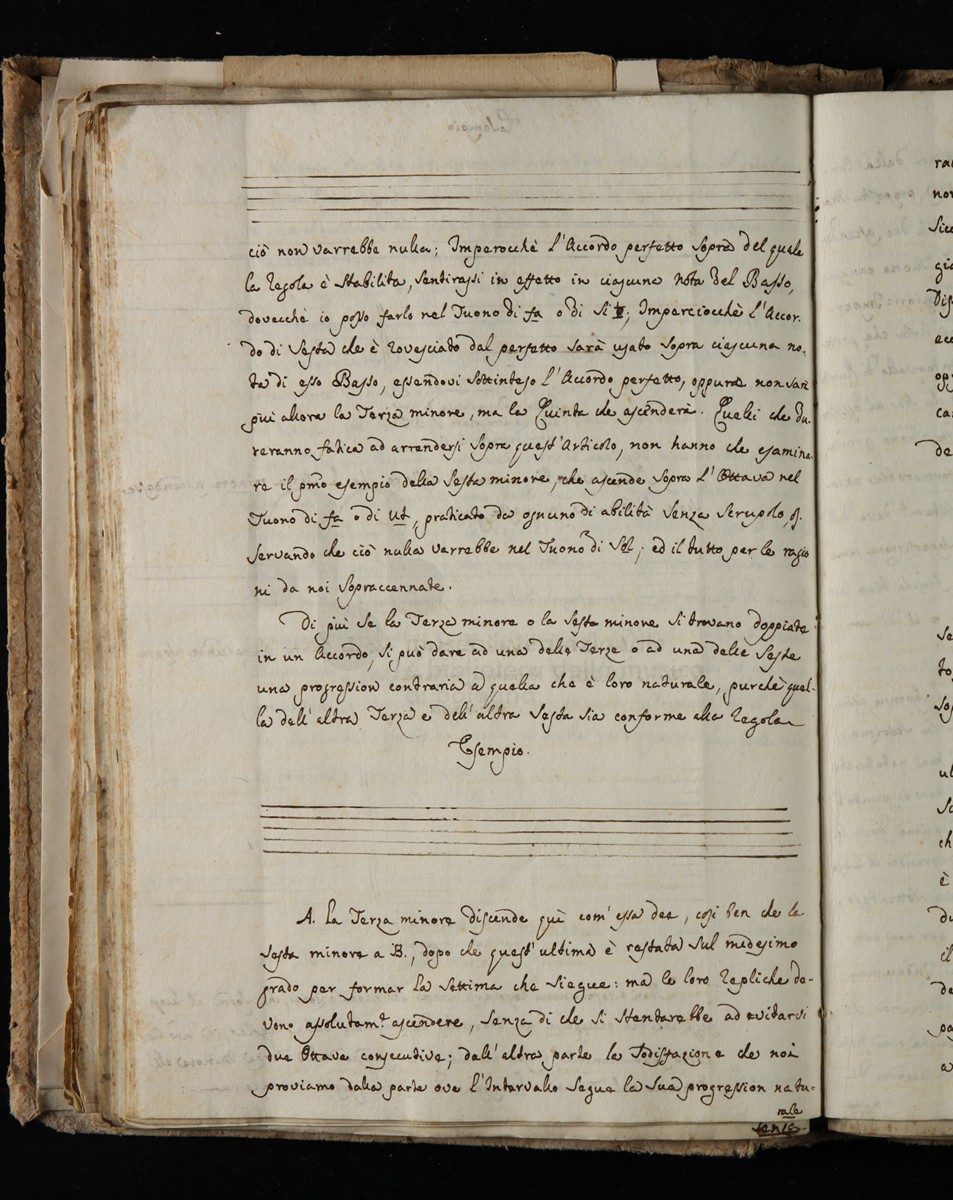 ciò non varrebbe nulla; Imperocchè l'Accordo perfetto sopra del quale
la Regola è stabilita, sentirassi in effetto in ciascuna nota del Basso,
dovecchè io posso farlo nel Tuono di fa o di Si ; Imperciocchè l'Accor-
do di Sesta che è rovesciato dal perfetto sarà usato sopra ciascuna no-
ta di esso Basso, essendovi sottinteso l'Accordo perfetto, oppure non sarà
più allora la Terza minore, ma la Quinta che ascenderà. Quelli che du-
reranno fatica ad arrendersi sopra quest'Articolo, non hanno che esamina-
re il pmo esempio della Sesta minore, che ascende sopra l'Ottava nel
Tuono di fa o di Ut, praticato da ognuno di abilità senza scrupolo, os-
servando che ciò nulla varrebbe nel Tuono di Sol; ed il tutto per le ragio
ni da noi sopraccennate.
Di più se la Terza minore o la Sesta minore si trovano doppiate
in un Accordo, si può dare ad una delle Terze o ad una delle Seste
una progression contraria a quella che è loro naturale, purchè quel-
la dell'altra Terza e dell'altra Sesta sia conforme alla Regola
Esempio.
A. La Terza minore discende quì com'essa dee, così ben che la
Sesta minore a B., dopo che quest'ultima è restata sul medesimo
grado per formar la Settima che siegue: ma le loro Repliche de-
vono assolutam.e ascendere, senza di che si stentarebbe ad evitarvi
due Ottave consecutive; dall'altra parte la sodisfazione che noi
proviamo dalla parte ove l'Intervallo segue la sua progression natu-
rale